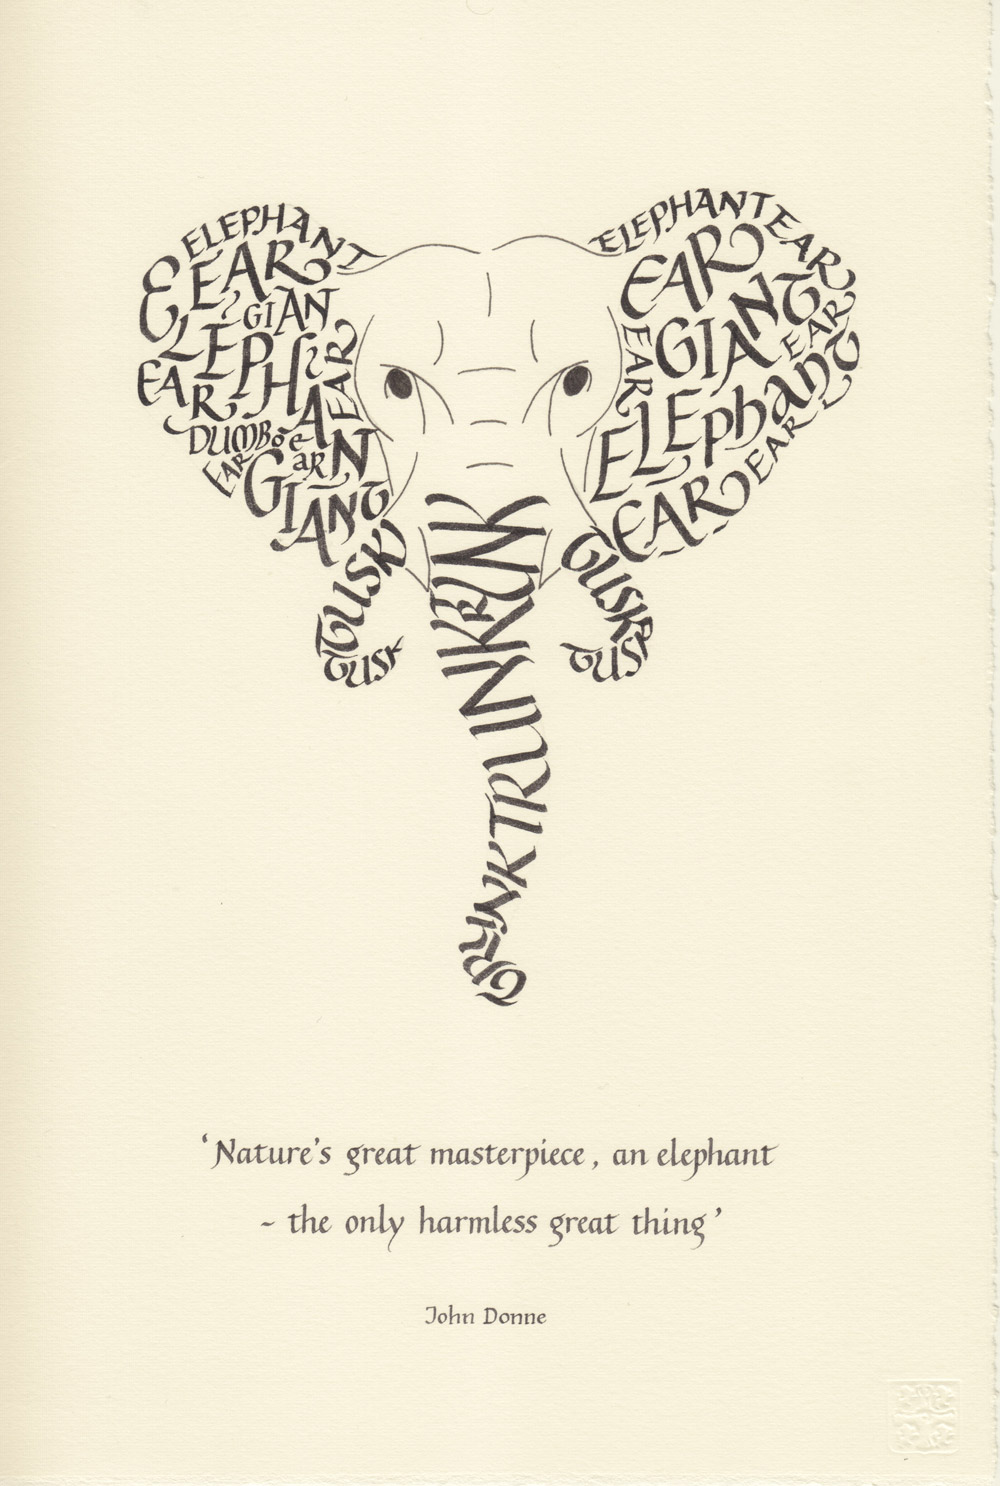 ELEPHANT
ELEPHANT
EAR
GIANT
EAR
EAR
DUMBO
ear
EAR
GIANT
ELEPHANT
EAR
EAR
EAR
GIANT
EAR
EAR
ELEphanT
EAR
EAR
TUSK
TUSK
TUSK
TUSK
TRUNK
TRUNK
TRUNK
‘Nature’s great masterpiece, an elephant
- the only harmless great thing’
John Donne